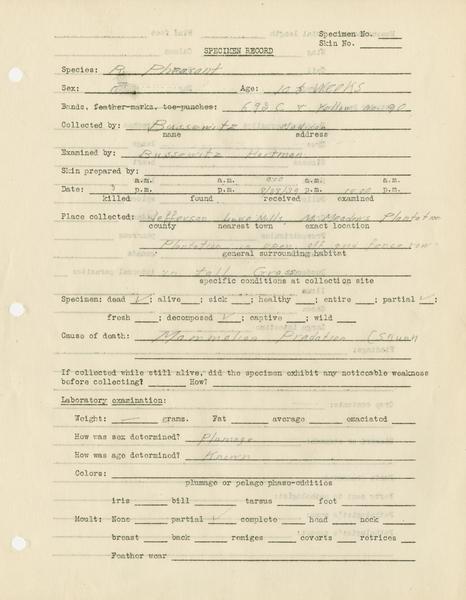 Specimen No.
Skin No.
SPECIMEN RECORD
Species: R. Pheasant
Sex: Age: 10½ WEEKS
Bands, feather-marks, toe-punches: 693 C + Yellow No. 90
Collected by: Bussewitz Madison
name address
Examined by: Bussewitz Hartman
Skin prepared by:
a.m. a.m. a.m. a.m.
Date: ? p.m. p.m. p.m. 10:00 p.m.
killed found received examined
Place collected: Jefferson Lake Mills, McMeadows Plantation
county nearest town exact location
Plantation in open, off fence row
general surrounding habitat
in tall Grass
specific conditions at collection site
Specimen: dead ✓; alive; sick; healthy; entire; partial ✓;
fresh; decomposed ✓; captive; wild
Cause of death: Mammalian Predation
If collected while still alive, did the specimen exhibit any noticable weakness
before collecting? How?
Laboratory examination:
Weight: — grams. Fat average emaciated
How was sex determined? Plumage
How was age determined? Known
Colors:
plumage or pelage phase-oddities
iris bill tarsus foot
Moult: None partial ✓ complete head neck
breast back remiges coverts retrices
Feather wear